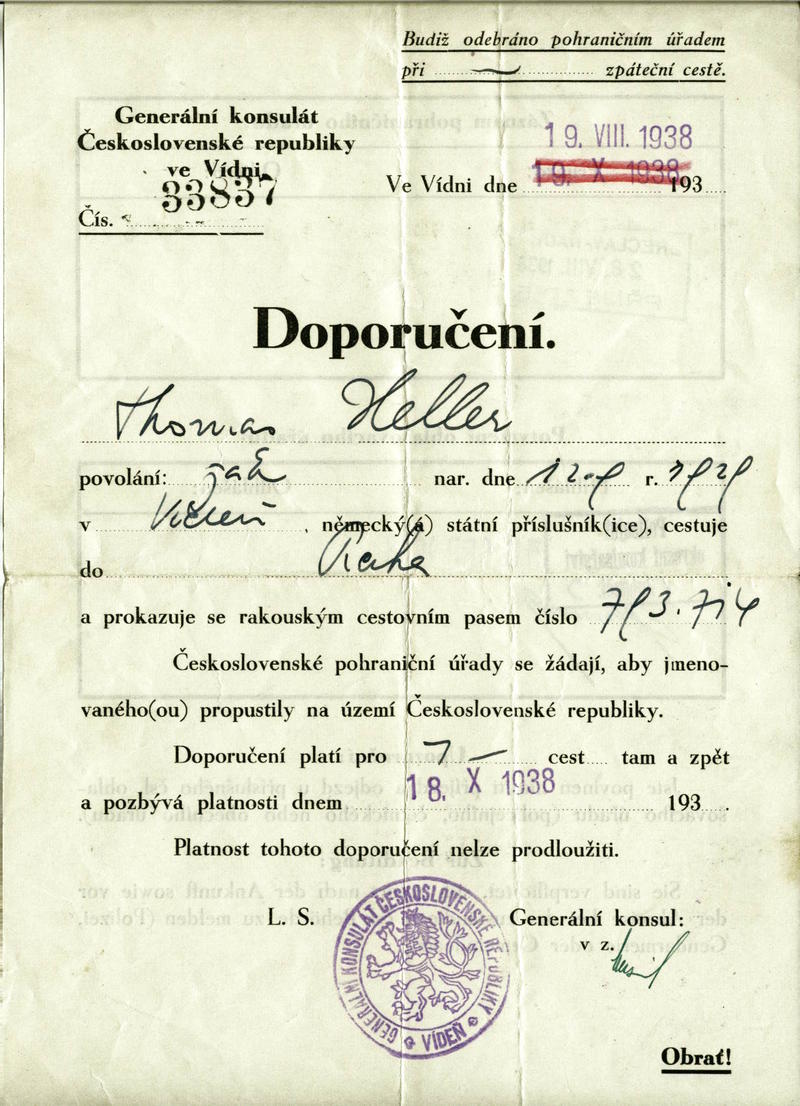 Budiž odebráno pohraničním úřadem
při zpáteční cestě.
Generální konsulát
Československé republiky
ve Vídni
33837
Čís.
19. VIII. 1938
Ve Vídni dne 19. X 1938 193
Doporučení.
Thomas Heller
povolání: žák nar. dne 12.9 r. 1929
v Vídeň, německý(á) státní příslušník(ice), cestuje
do Praha
a prokazuje se rakouským cestovním pasem číslo
Československé pohraniční úřady se žádají, aby jmeno-
vaného(ou) propustily na území Československé republiky.
Doporučení platí pro cest tam a zpět
18. X 1938
a pozbývá platnosti dnem 193 .
Platnost tohoto doporučení nelze prodloužiti.
L. S. Generální konsul:
v z.
GENERÁLNÍ KONSULÁT ČESKOSLOVENSKÉ REPUBLIKY
VÍDEŇ
Obrať!